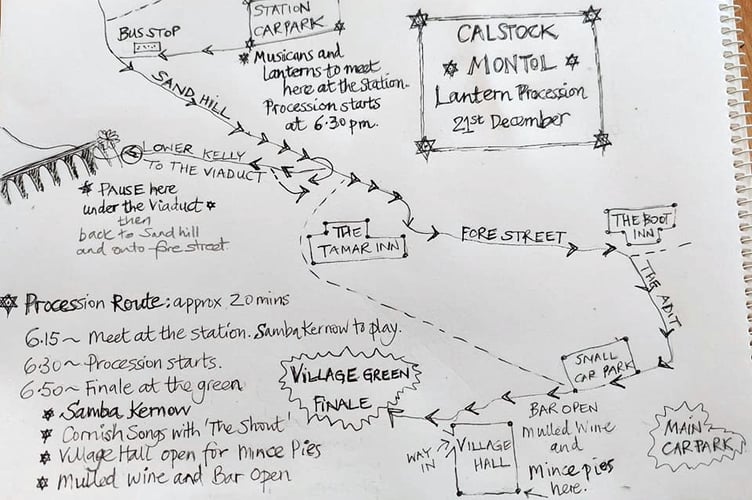 STATION
CARPARK
BUS STOP
Musicans and
Lanterns to meet
here at the Station.
Procession starts
at 6.30pm.
CALSTOCK
MONTOL
Lantern Procession
21st December
SAND HILL
LOWER KELLY
TO THE VIADUCT
PAUSE here
under the Viaduct
then
back to Sand hill
and onto fore street
THE
TAMAR INN
FORE STREET
THE BOOT
INN
THE ADIT
Procession Route: approx 20 mins
6.15~ Meet at the station. Samba Kernow to play.
6.30~ Procession starts.
6.50~ Finale at the green
Samba Kernow
Cornish Songs with 'The Shout'
Village Hall open for Mince Pies
Mulled Wine and Bar Open
VILLAGE GREEN
FINALE
SMALL
CAR PARK
BAR OPEN
Mulled Wine
and
Mince pies
here.
WAY
IN
VILLAGE
HALL
MAIN
CARPARK